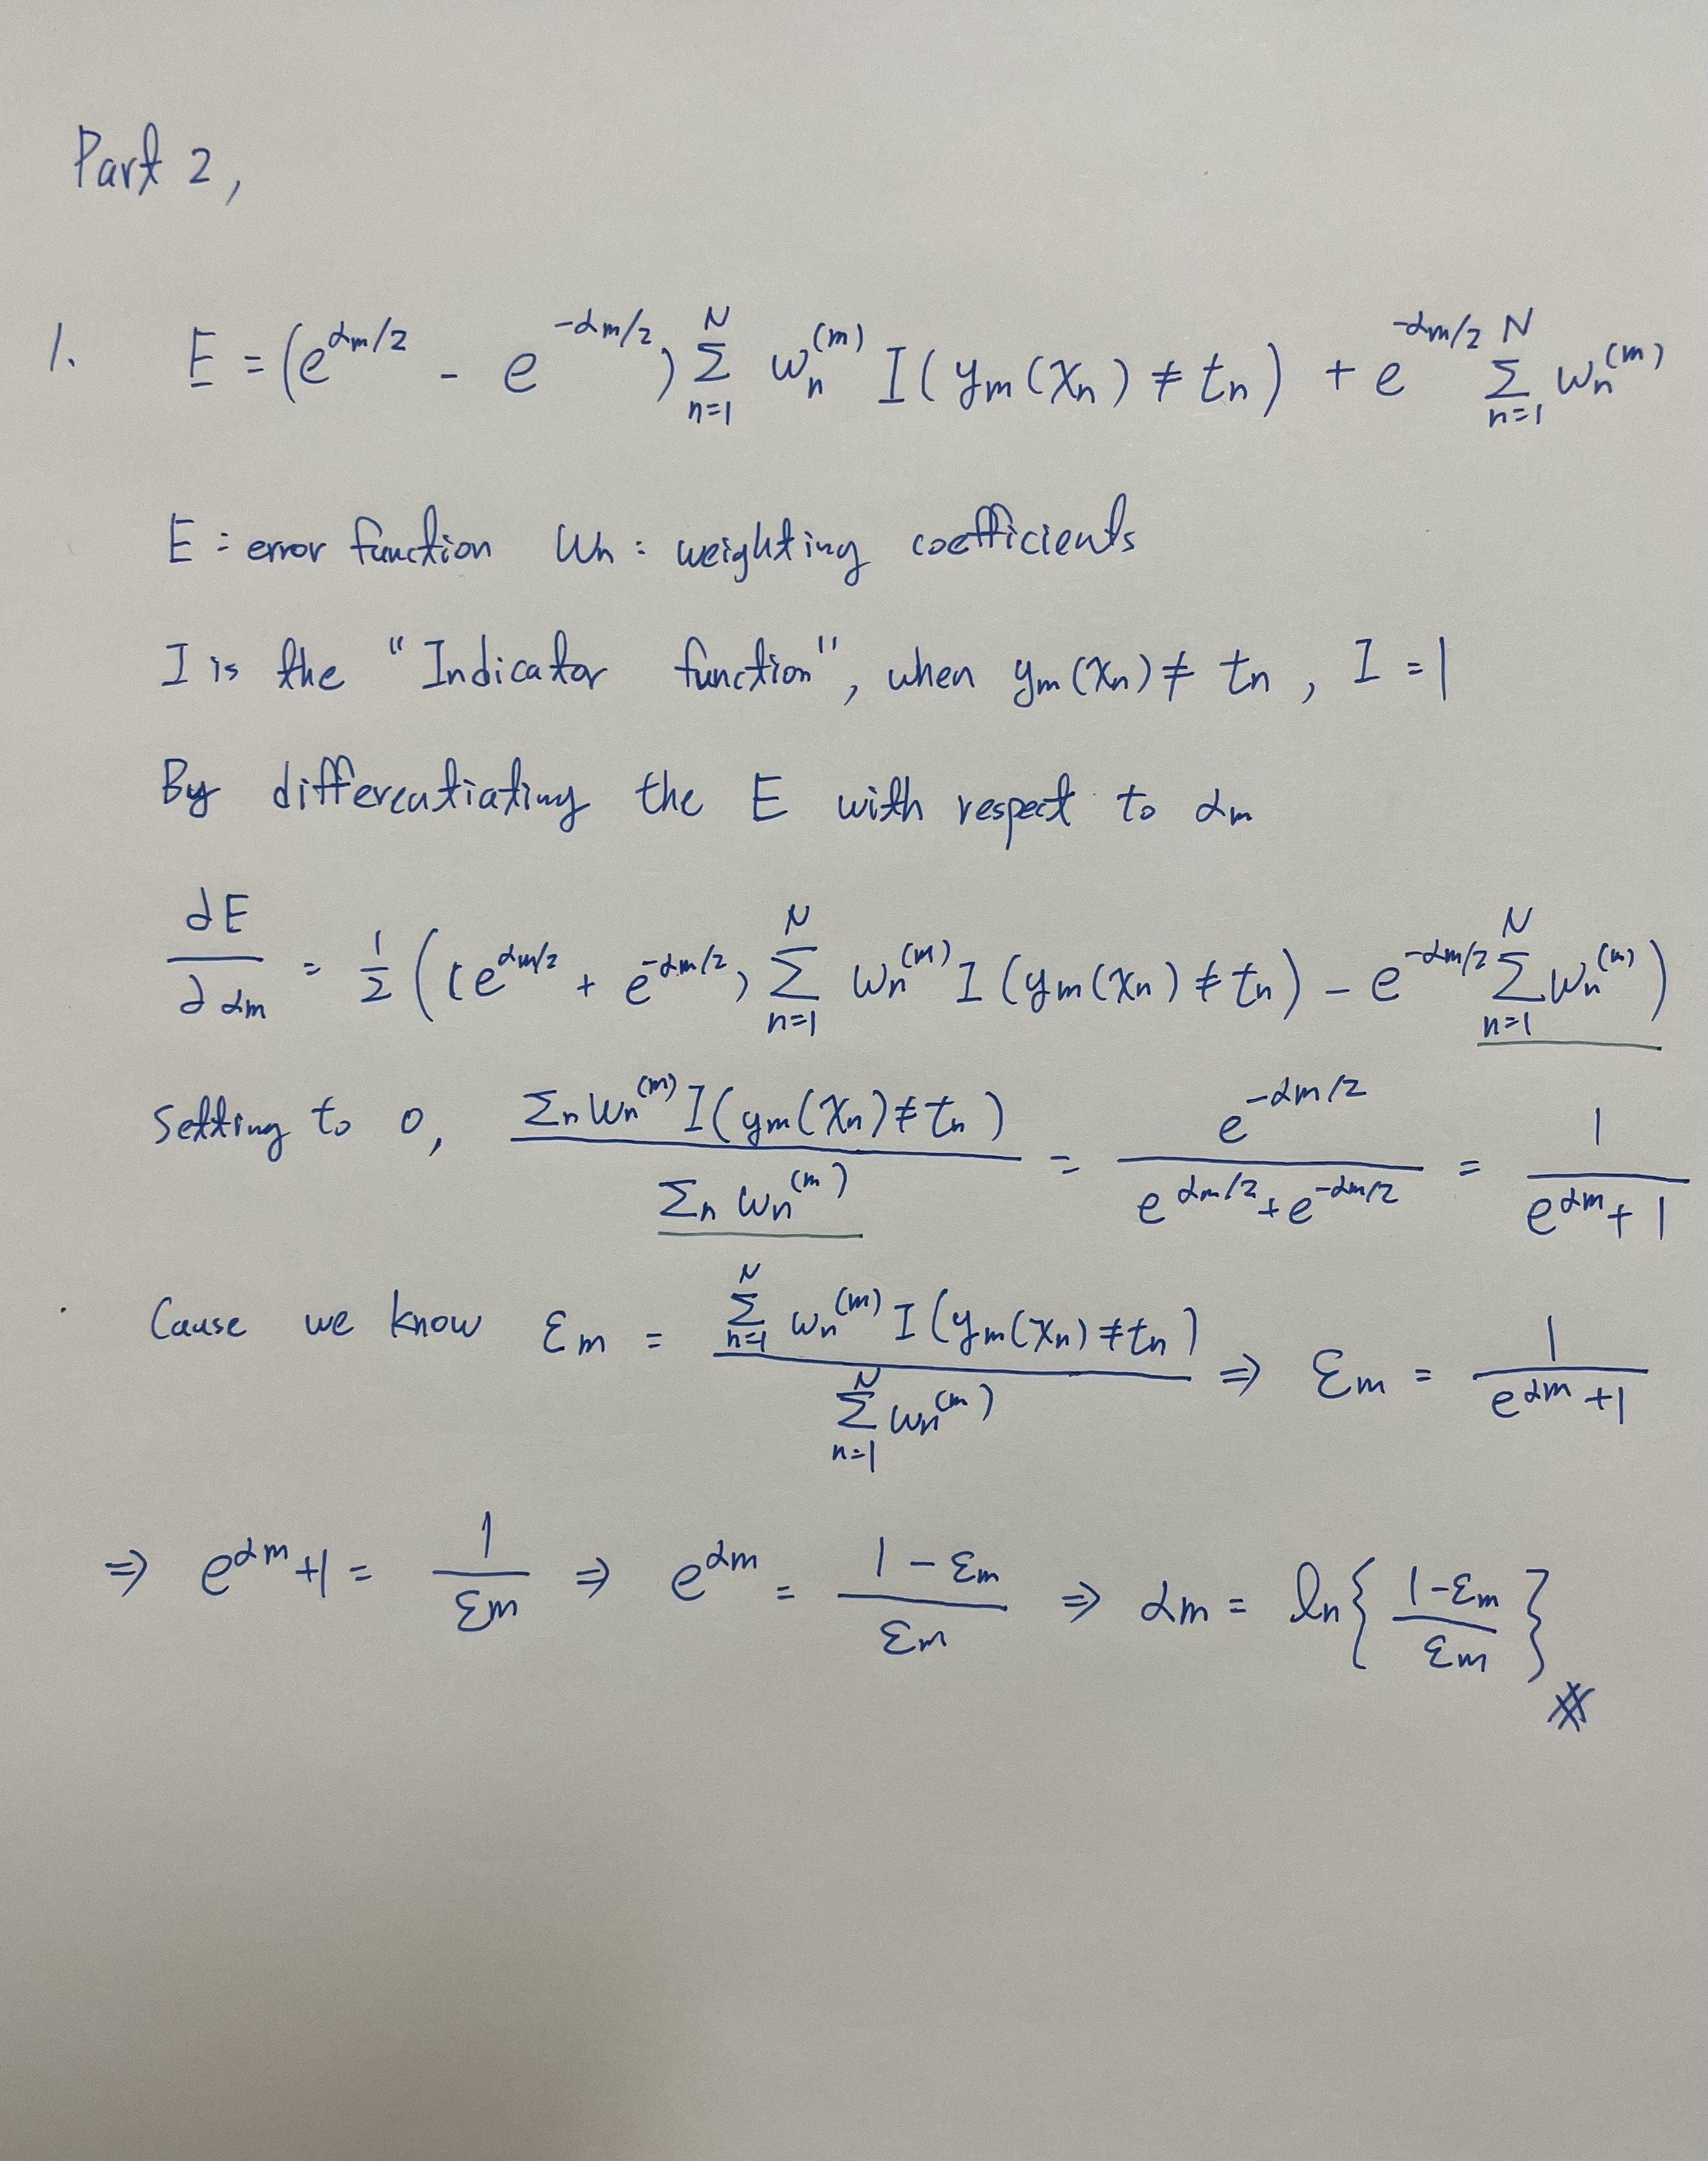 Part 2,
1. E = (e^{αm/2} - e^{-αm/2}) Σ_{n=1}^{N} wn^{(m)} I(ym(xn) ≠ tn) + e^{-αm/2} Σ_{n=1}^{N} wn^{(m)}
E : error function wn : weighting coefficients
I is the "Indicator function", when ym(xn) ≠ tn, I = 1
By differentiating the E with respect to αm
∂E/∂αm = 1/2 ((e^{αm/2} + e^{-αm/2}) Σ_{n=1}^{N} wn^{(m)} I(ym(xn) ≠ tn) - e^{-αm/2} Σ_{n=1}^{N} wn^{(m)})
Setting to 0, Σn wn^{(m)} I(ym(xn) ≠ tn) / Σn wn^{(m)} = e^{-αm/2} / (e^{αm/2} + e^{-αm/2}) = 1 / (e^{αm} + 1)
Cause we know εm = Σ_{n=1}^{N} wn^{(m)} I(ym(xn) ≠ tn) / Σ_{n=1}^{N} wn^{(m)} ⇒ εm = 1 / (e^{αm} + 1)
⇒ e^{αm} + 1 = 1/εm ⇒ e^{αm} = (1 - εm)/εm ⇒ αm = ln{(1 - εm)/εm}